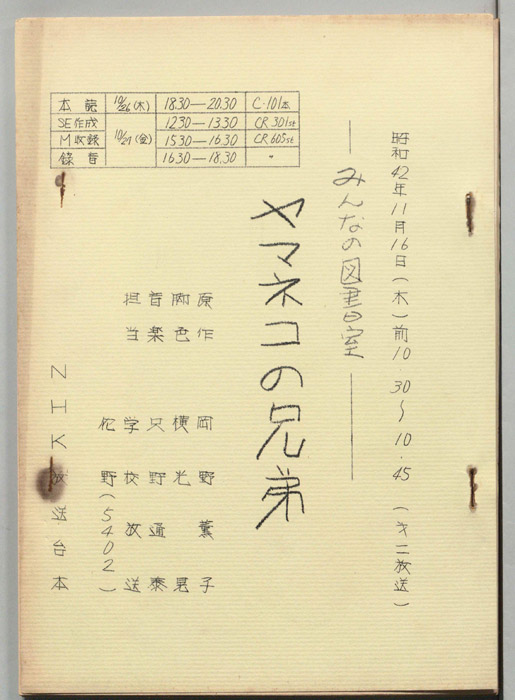 昭和42年11月16日(木)前10.30〜10.45 (オ二放送)
―みんなの図書室―
ヤマネコの兄弟
原作 岡野薫子
脚色 横光晃
音楽 只野通泰
担当 学校放送
佗野(5402)
NHK放送台本
本読 10/26(木) 18.30―20.30 C・101本
SE作成 10/27(金) 12.30―13.30 CR301st
M収録 15.30―16.30 CR605st
録音 16.30―18.30 〃